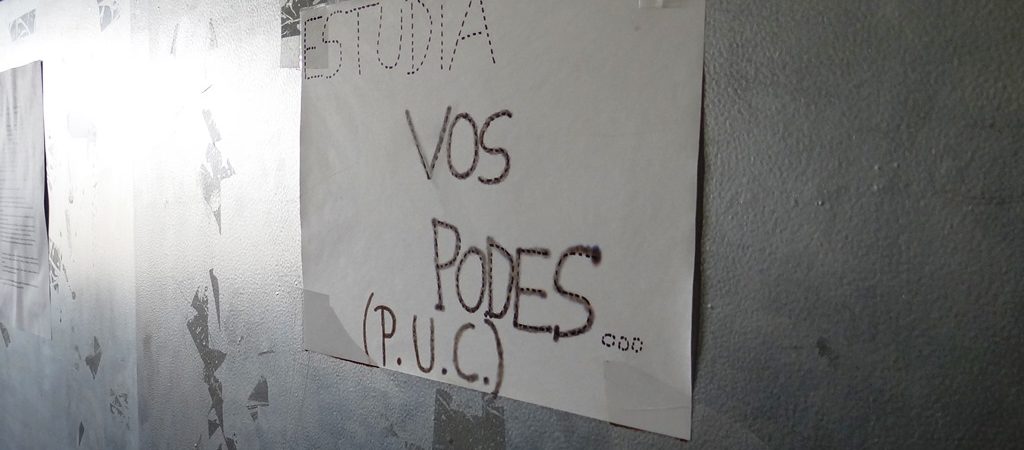 ESTUDIA
VOS
PODES...
(P.U.C.)